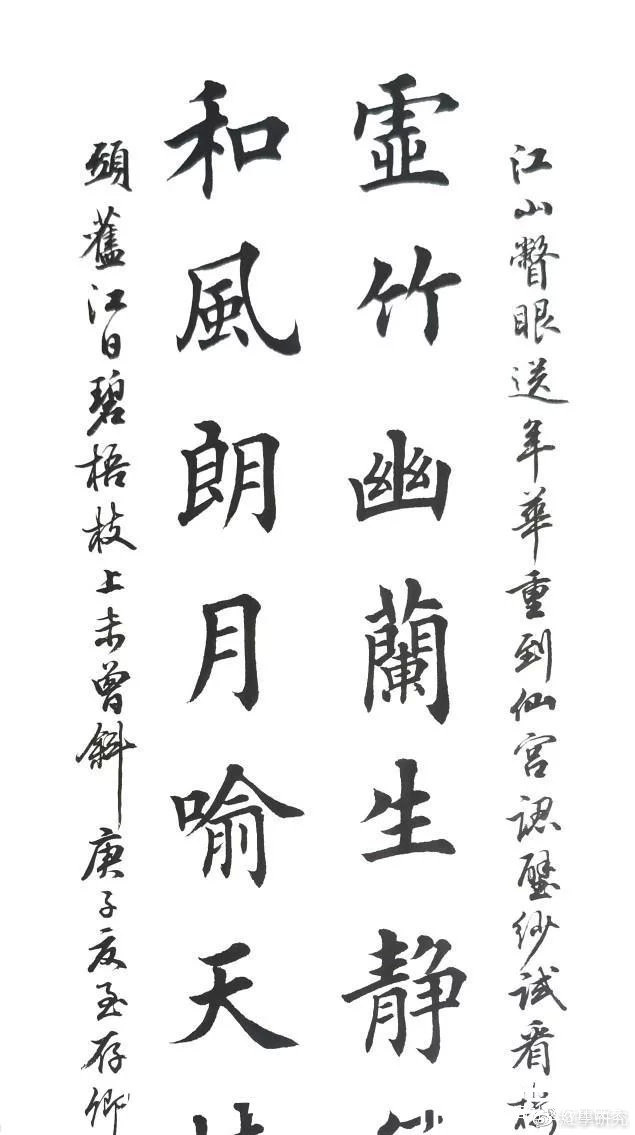 江山瞥眼送年華重到仙宮認壁紗試看樓
虛竹幽蘭生静
和風朗月喻天
頭舊江日碧梧枝上未曾斜 庚子夏至存卿